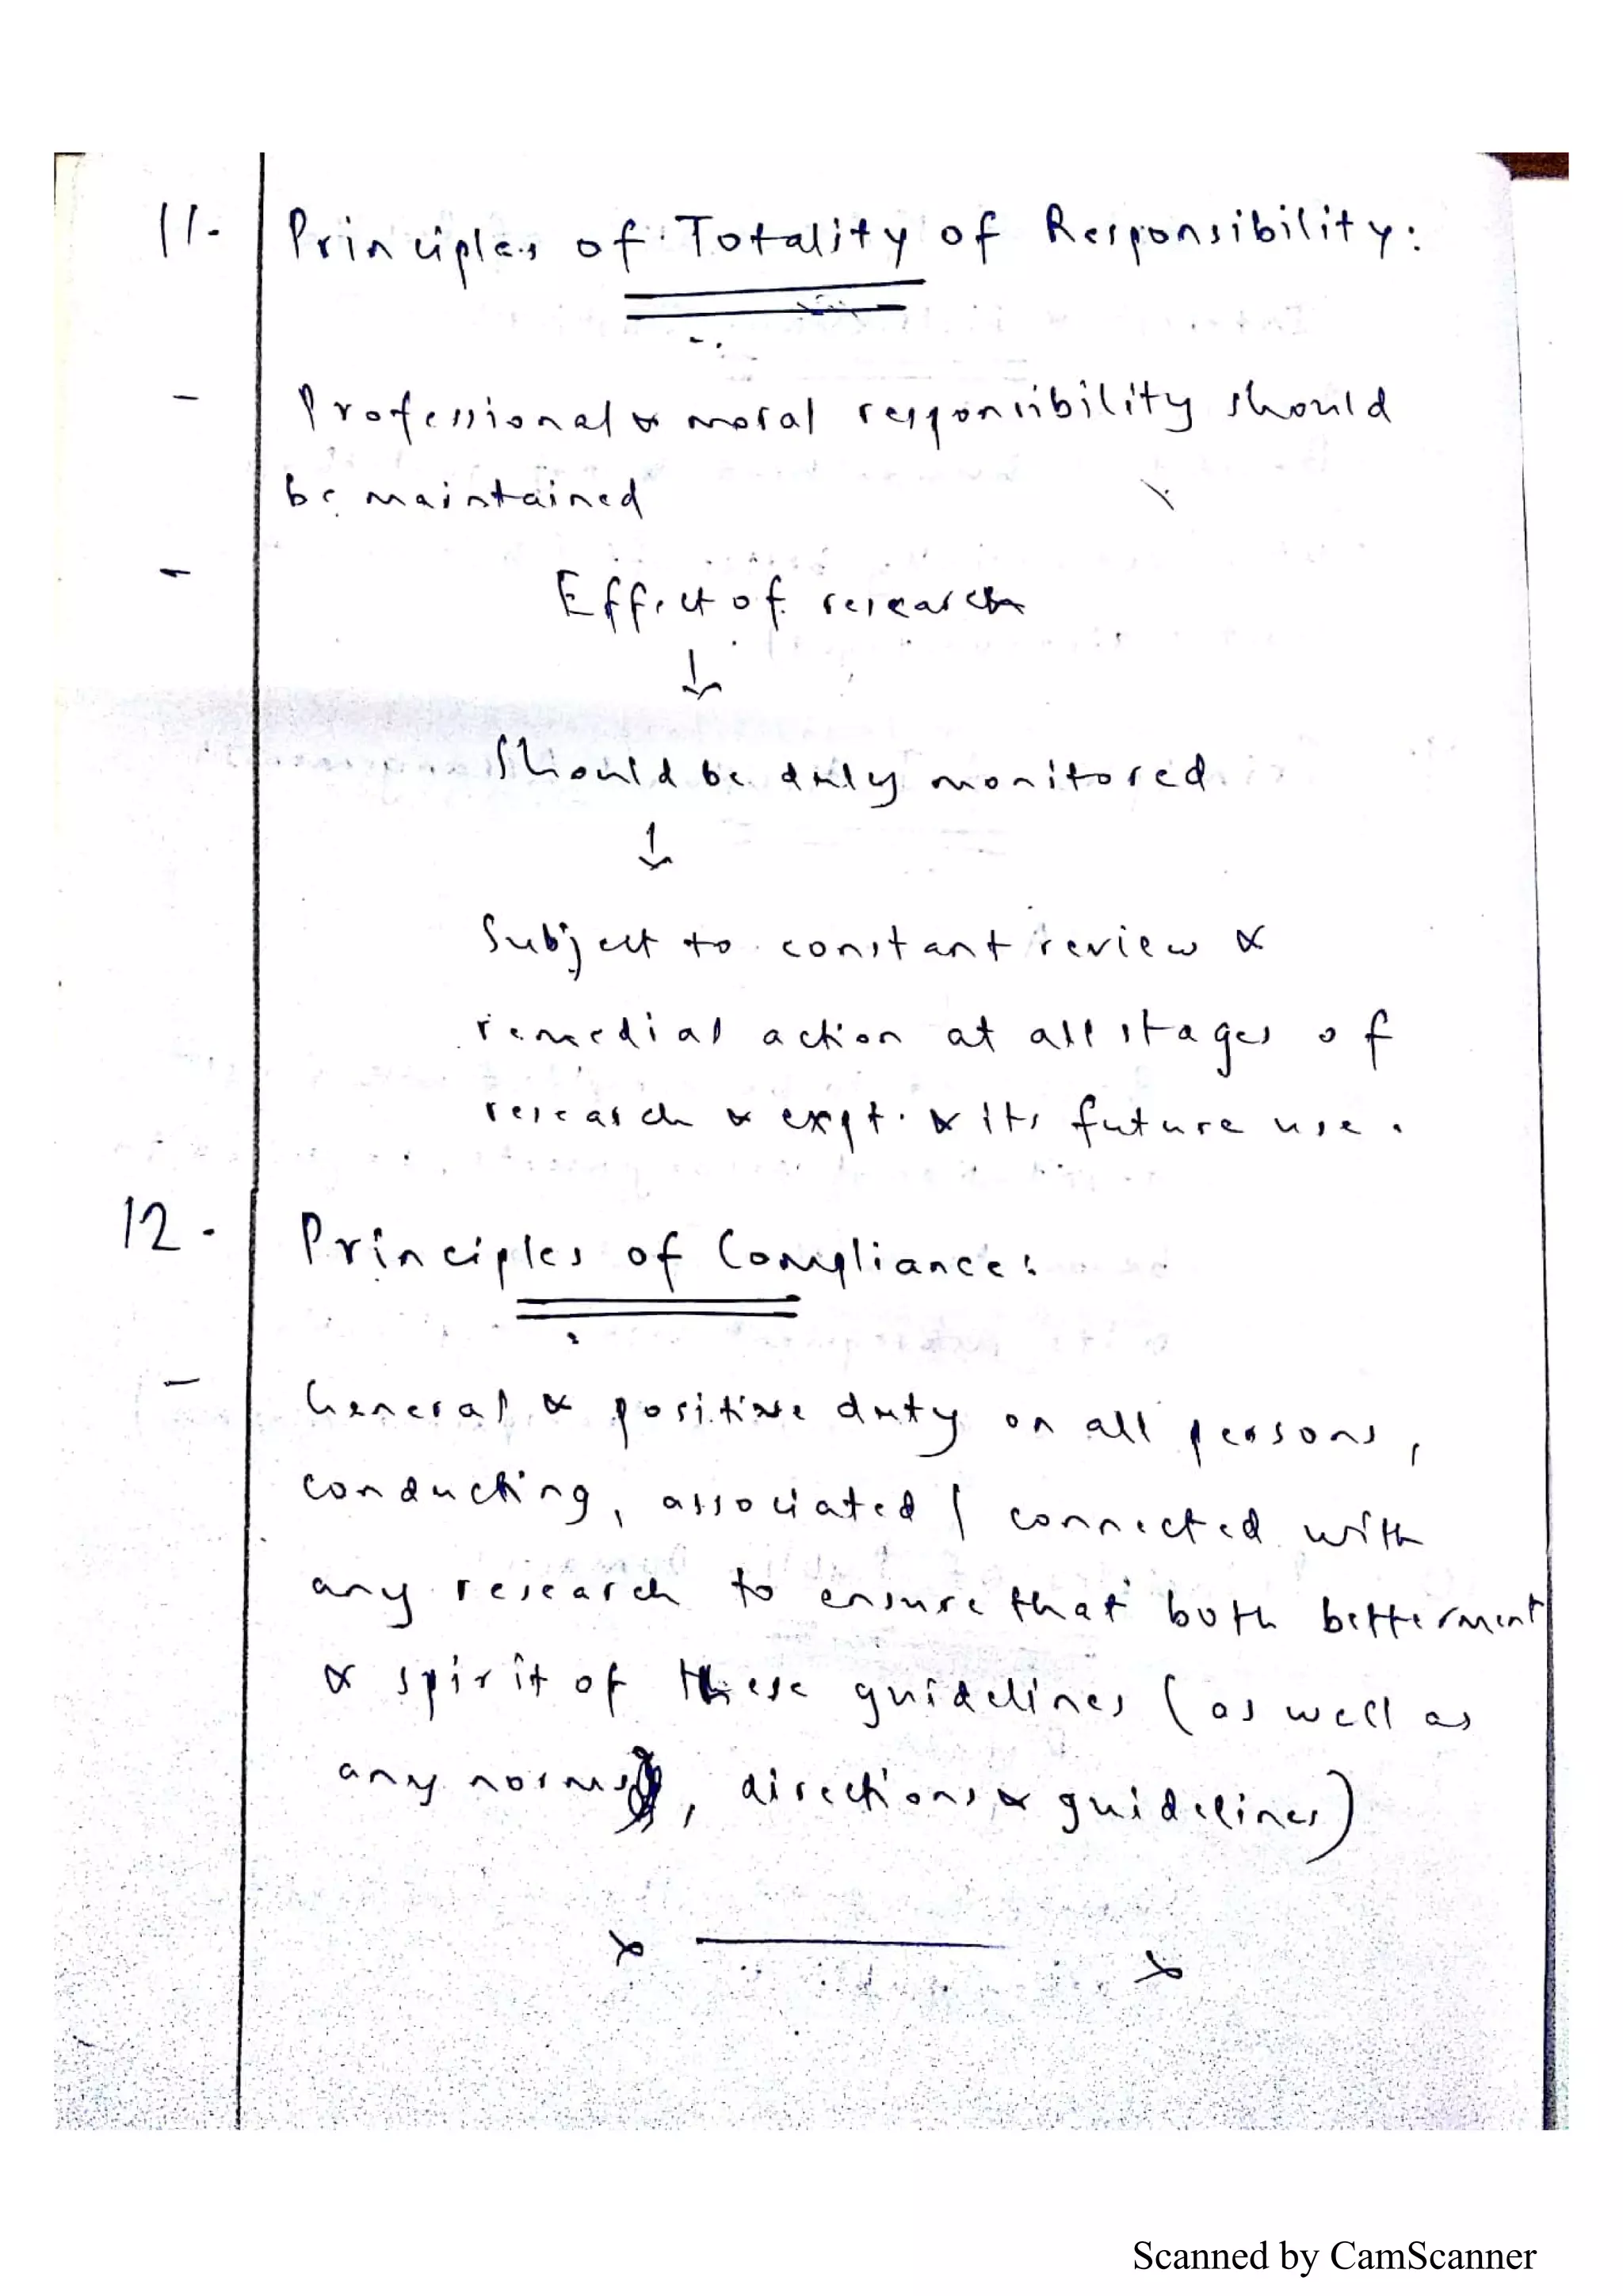 11. Principles of Totality of Responsibility:
- Professional & moral responsibility should
be maintained
- Effect of research
↓
Should be duly monitored
↓
Subject to constant review &
remedial action at all stages of
research & expt. & its future use.
12. Principles of Compliance:
- General & positive duty on all persons,
conducting, associated / connected with
any research to ensure that both betterment
& spirit of these guidelines (as well as
any norms, directions & guidelines)
x ——— x
Scanned by CamScanner